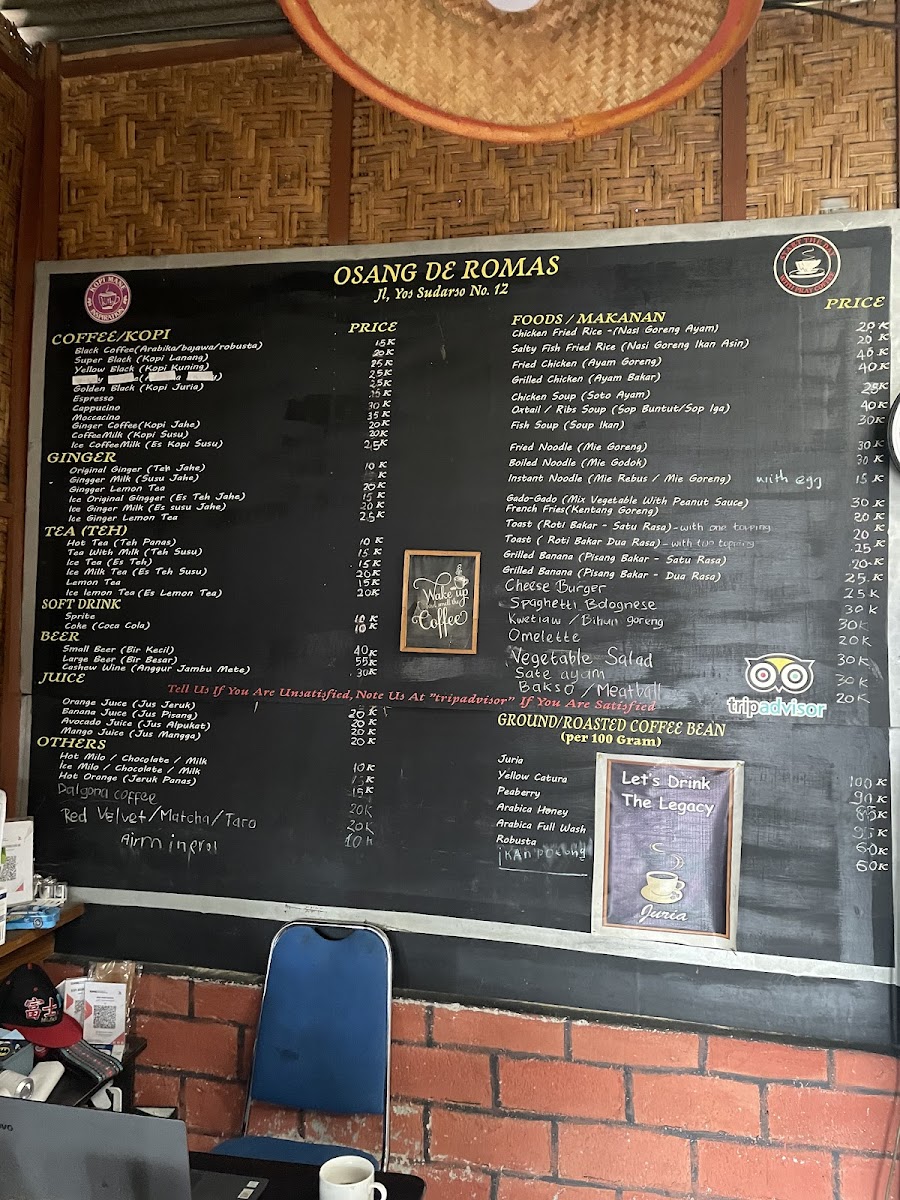 OSANG DE ROMAS
Jl, Yos Sudarso No. 12
KOPI MANE
INSPIRATION
START THE DAY
WITH PRAY COFFEE
COFFEE/KOPI PRICE
Black Coffee(Arabika/bajawa/robusta) 15K
Super Black (Kopi Lanang) 20K
Yellow Black (Kopi Kuning) 25K
25K
Golden Black (Kopi Juria) 25K
Espresso
Cappucino 30K
Moccacino 35K
Ginger Coffee(Kopi Jahe) 20K
CoffeeMilk (Kopi Susu) 20K
Ice CoffeeMilk (Es Kopi Susu) 25K
GINGER
Original Ginger (Teh Jahe) 10K
Gingger Milk (Susu Jahe)
Gingger Lemon Tea 20K
Ice Original Gingger (Es Teh Jahe) 15K
Ice Ginger Milk (Es susu Jahe) 20K
Ice Ginger Lemon Tea 25K
TEA (TEH)
Hot Tea (Teh Panas) 10K
Tea With Milk (Teh Susu) 15K
Ice Tea (Es Teh) 15K
Ice Milk Tea (Es Teh Susu) 20K
Lemon Tea 15K
Ice lemon Tea (Es Lemon Tea) 20K
SOFT DRINK
Sprite 10K
Coke (Coca Cola) 10K
BEER
Small Beer (Bir Kecil) 40K
Large Beer (Bir Besar) 55K
Cashew Wine (Anggur Jambu Mete) 30K
JUICE
Tell Us If You Are Unsatisfied, Note Us At "tripadvisor" If You Are Satisfied
Orange Juice (Jus Jeruk) 20K
Banana Juice (Jus Pisang) 20K
Avocado Juice (Jus Alpukat) 20K
Mango Juice (Jus Mangga) 20K
OTHERS
Hot Milo / Chocolate / Milk 10K
Ice Milo / Chocolate / Milk 15K
Hot Orange (Jeruk Panas) 15K
Dalgona coffee 20K
Red Velvet/Matcha/Taro 20K
Air mineral 10K
Wake up
and smell the
Coffee
FOODS / MAKANAN PRICE
Chicken Fried Rice -(Nasi Goreng Ayam) 20K
Salty Fish Fried Rice (Nasi Goreng Ikan Asin) 20K
Fried Chicken (Ayam Goreng) 40K
Grilled Chicken (Ayam Bakar) 40K
Chicken Soup (Soto Ayam) 25K
Oxtail / Ribs Soup (Sop Buntut/Sop Iga) 40K
Fish Soup (Soup Ikan) 30K
Fried Noodle (Mie Goreng) 30K
Boiled Noodle (Mie Godok) 30K
Instant Noodle (Mie Rebus / Mie Goreng) with egg 15K
Gado-Gado (Mix Vegetable With Peanut Sauce) 30K
French Fries(Kentang Goreng) 20K
Toast (Roti Bakar - Satu Rasa) - with one topping 20K
Toast ( Roti Bakar Dua Rasa) - with two topping 25K
Grilled Banana (Pisang Bakar - Satu Rasa) 20K
Grilled Banana (Pisang Bakar - Dua Rasa) 25K
Cheese Burger 25K
Spaghetti Bolognese 30K
Kwetiaw / Bihun goreng 30K
Omelette 20K
Vegetable Salad 30K
Sate ayam 30K
Bakso / Meatball 20K
tripadvisor
GROUND/ROASTED COFFEE BEAN
(per 100 Gram)
Juria 100K
Yellow Catura 90K
Peaberry 85K
Arabica Honey 95K
Arabica Full Wash 60K
Robusta 60K
Let's Drink
The Legacy
Juria